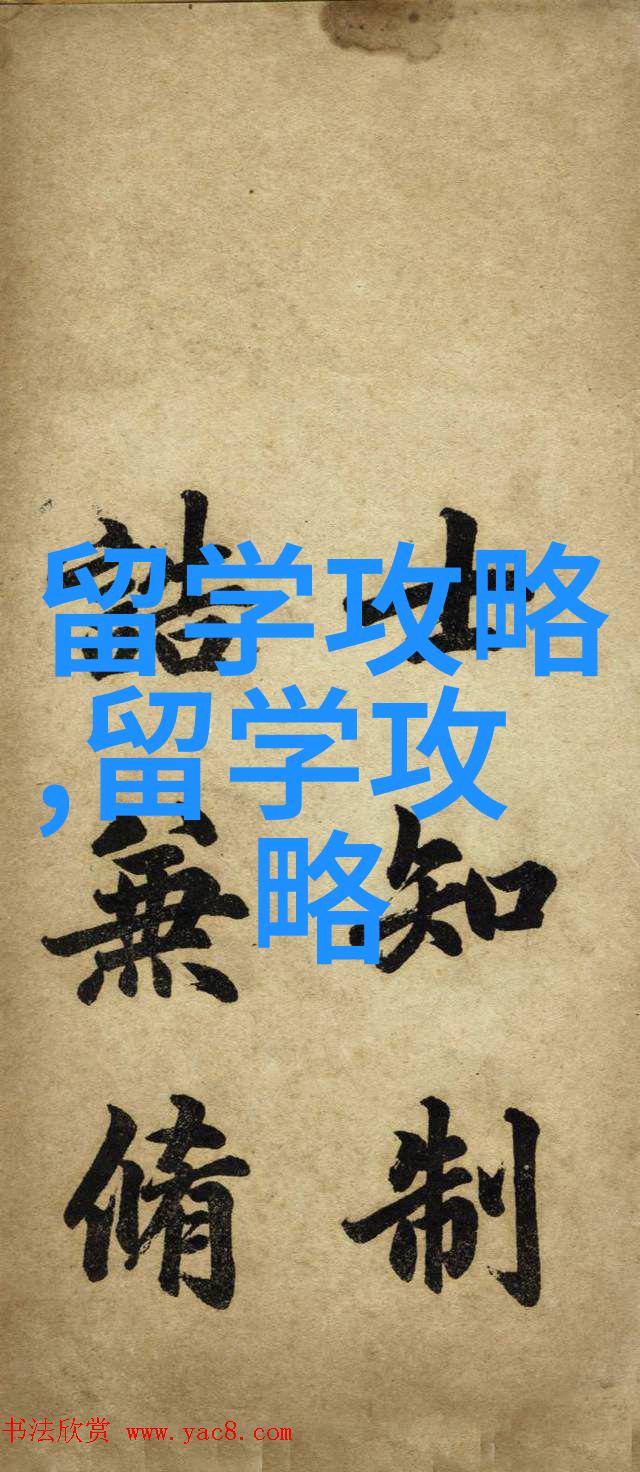 留学攻略
,留学攻
略
士知制
誥兼脩
书法欣赏 www.yac8.com